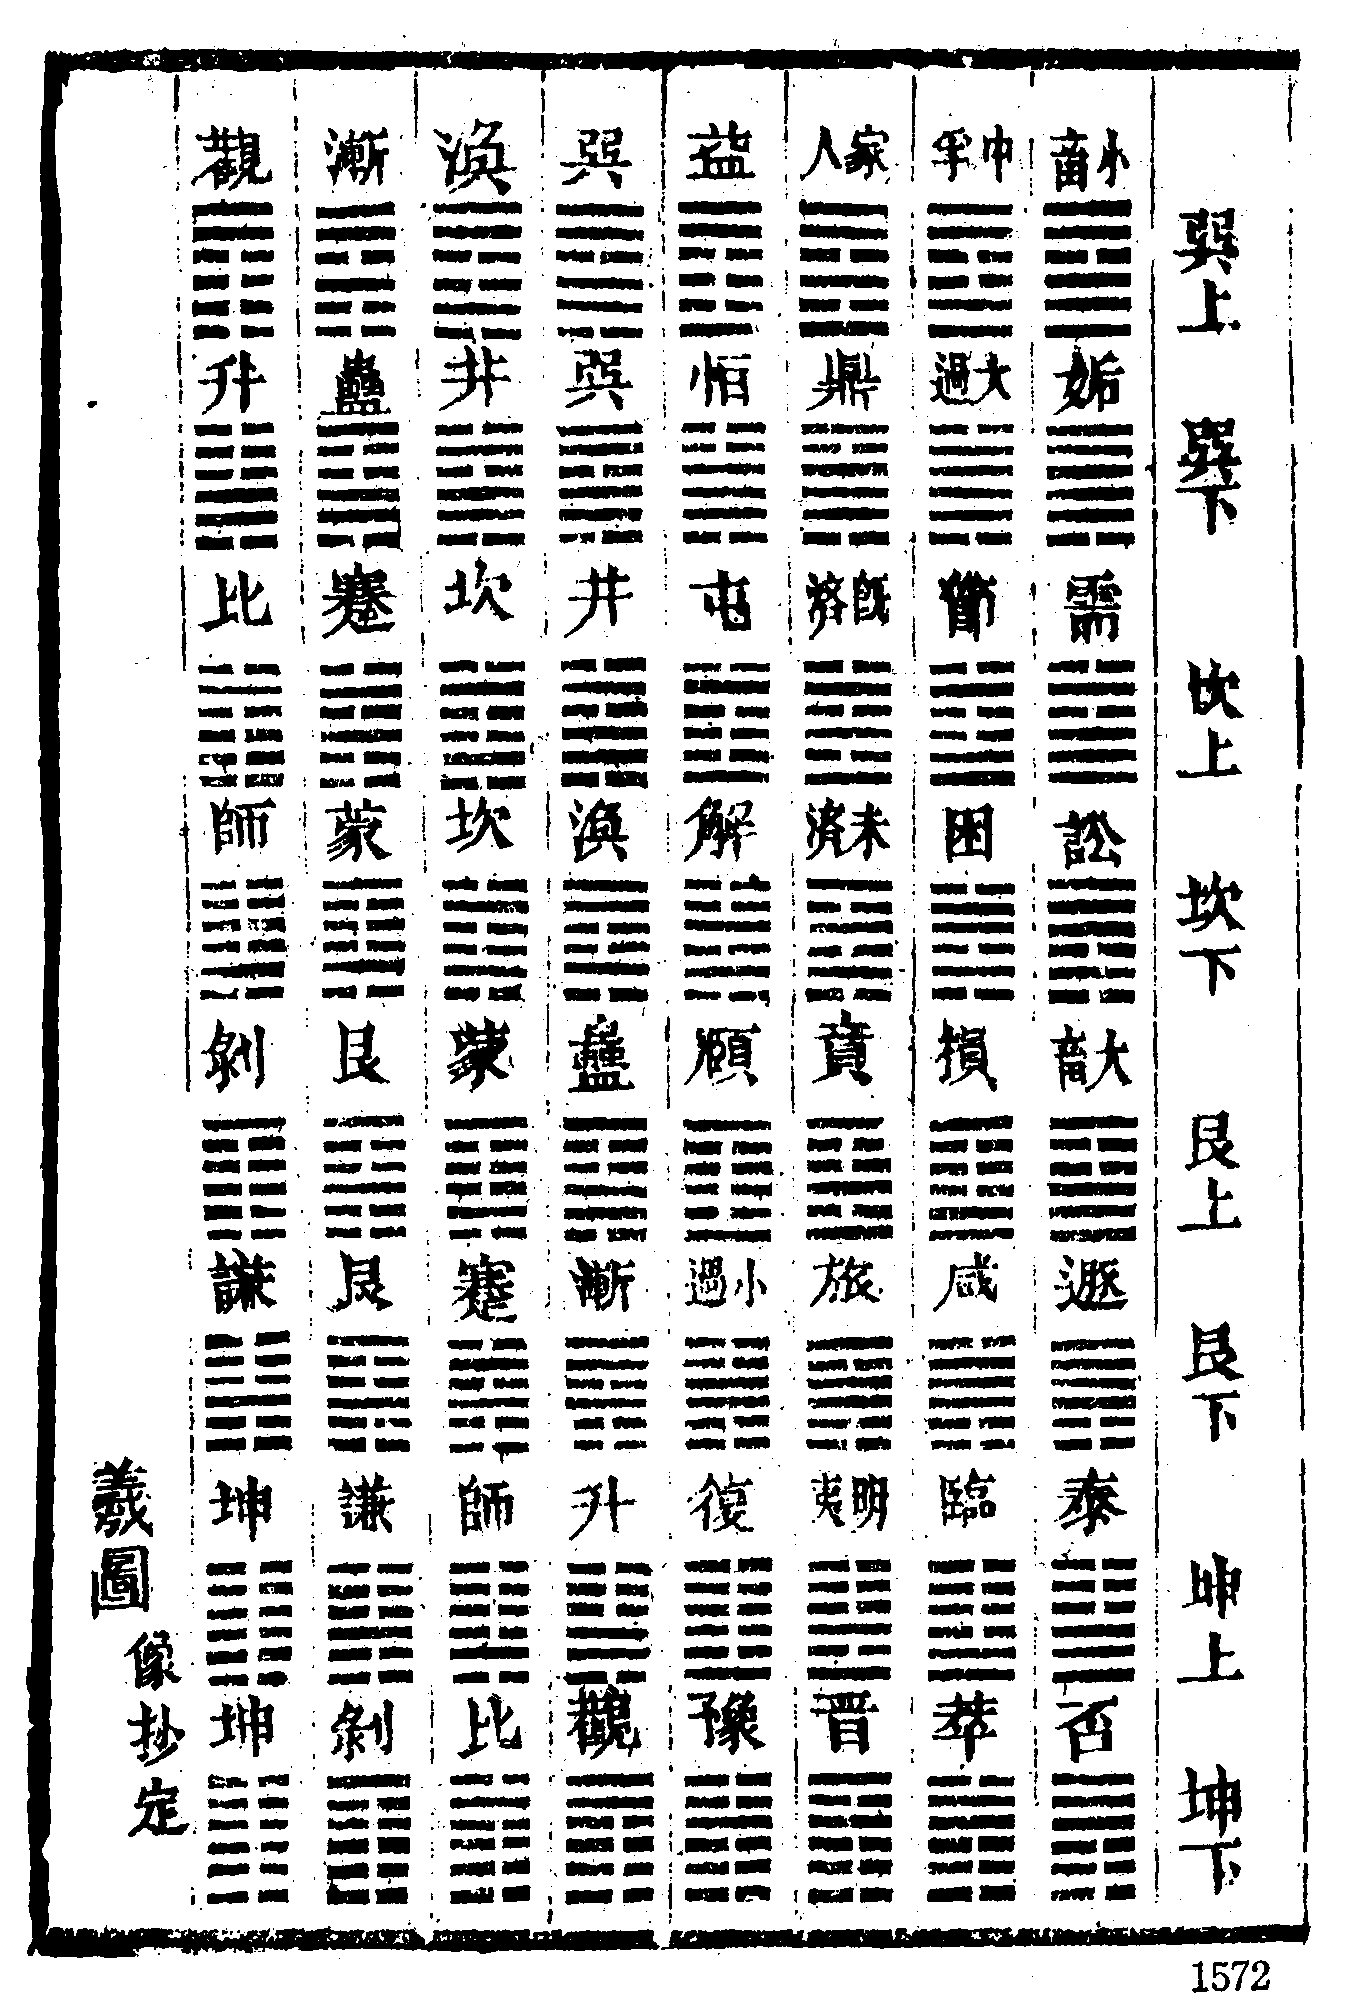 巽上 巽下 坎上 坎下 艮上 艮下 坤上 坤下
小畜 姤 需 訟 大畜 遯 泰 否
中孚 大過 節 困 損 咸 臨 萃
家人 鼎 既濟 未濟 賁 旅 明夷 晋
益 恒 屯 解 頤 小過 復 豫
巽 巽 井 渙 蠱 漸 升 觀
渙 井 坎 坎 蒙 蹇 師 比
漸 蠱 蹇 蒙 艮 艮 謙 剝
觀 升 比 師 剝 謙 坤 坤
像抄定
羲圖
1572